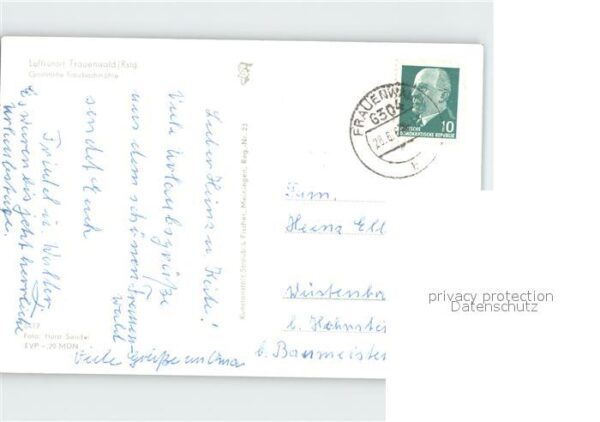 Luftkurort Frauenwald/Rstg.
Gaststätte Fraubachmühle
Lieber Heinz u. Heide!
Viele Urlaubsgrüße
aus dem schönen Frauen-
wald
sendet Euch
Friedel u. Walter
Es waren bis jetzt herrliche
Urlaubstage.
Viele Grüße an Oma
Foto: Horst Sander
EVP -,20 MDN
Kunstanstalt Straub & Fischer, Meiningen, Reg.-Nr. 23
FRAUENWALD
6304
28.6.
10
DEUTSCHE
DEMOKRATISCHE REPUBLIK
Fam.
Heinz Ell
Wüstenbo
b.
b. Baumeister
privacy protection
Datenschutz